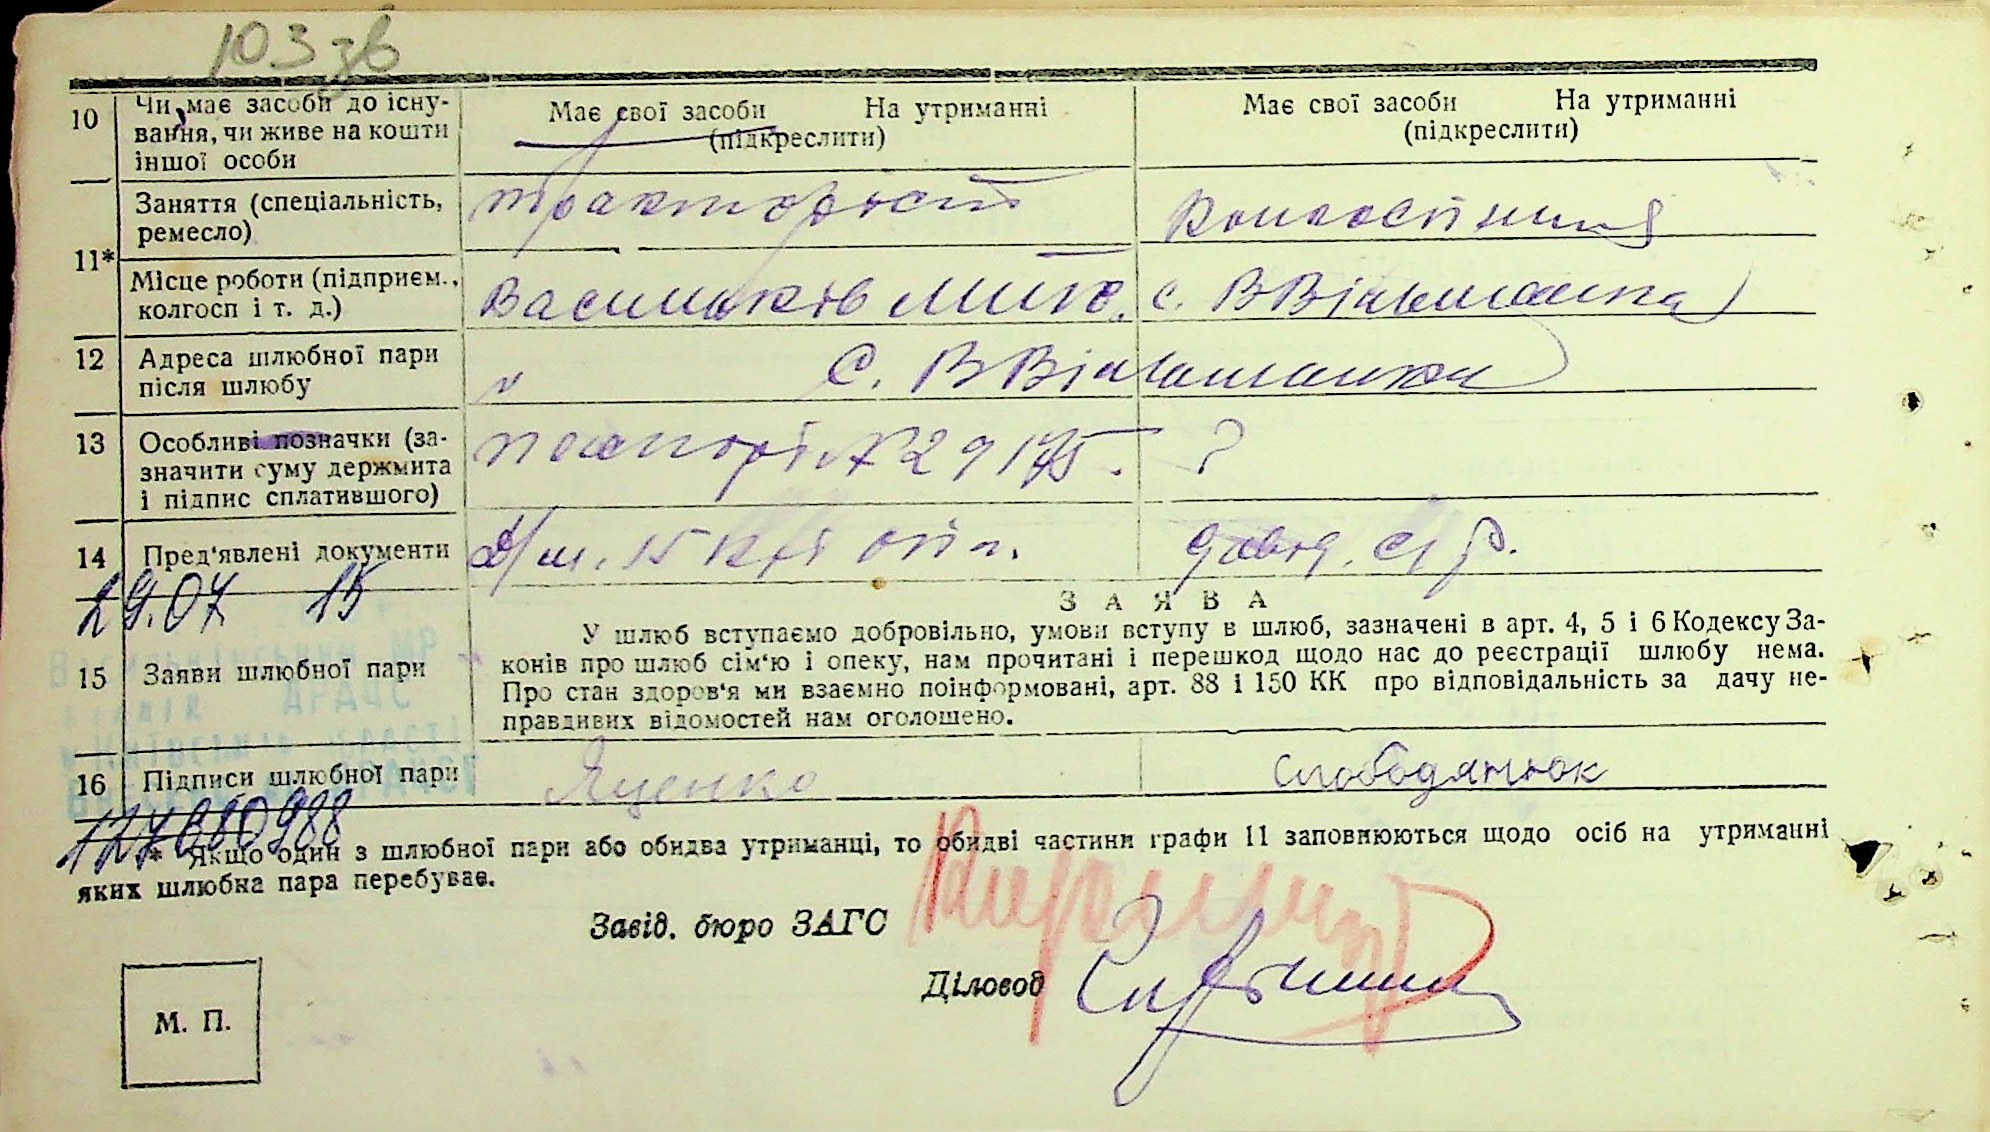 103 зв
10 Чи має засоби до існу-
вання, чи живе на кошти
іншої особи
Має свої засоби На утриманні
(підкреслити)
Має свої засоби На утриманні
(підкреслити)
11* Заняття (спеціальність,
ремесло)
тракторіст
Місце роботи (підприєм.,
колгосп і т. д.)
Васильків МТС.
с. ВВільшанка
12 Адреса шлюбної пари
після шлюбу
" с. ВВільшанка
13 Особливі позначки (за-
значити суму держмита
і підпис сплатившого)
паспорт № 29175.
?
14 Пред'явлені документи
довід. с/р.
29.07 15
З А Я В А
15 Заяви шлюбної пари
У шлюб вступаємо добровільно, умови вступу в шлюб, зазначені в арт. 4, 5 і 6 Кодексу За-
конів про шлюб сім'ю і опеку, нам прочитані і перешкод щодо нас до реєстрації шлюбу нема.
Про стан здоров'я ми взаємно поінформовані, арт. 88 і 150 КК про відповідальність за дачу не-
правдивих відомостей нам оголошено.
16 Підписи шлюбної пари
Яценко
Слободянюк
* Якщо один з шлюбної пари або обидва утриманці, то обидві частини графи 11 заповнюються щодо осіб на утриманні
яких шлюбна пара перебуває.
Завід. бюро ЗАГС
Діловод
М. П.